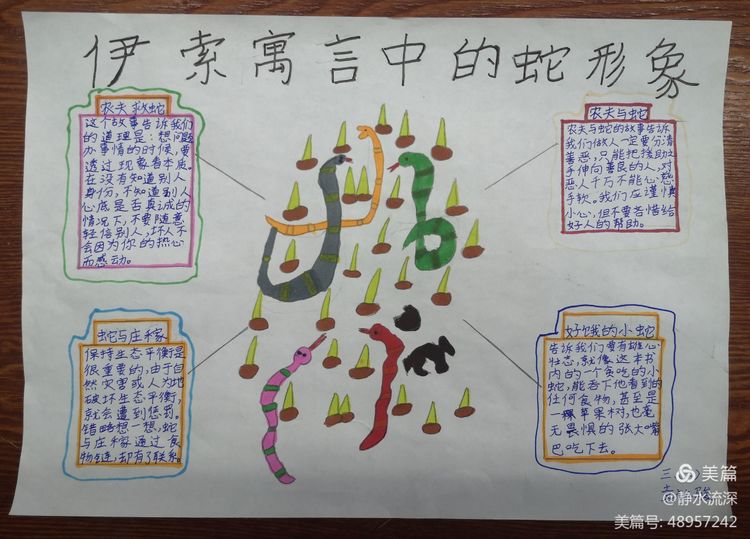 伊索寓言中的蛇形象
农夫救蛇
这个故事告诉我们
的道理是：想问题
办事情的时候，要
透过现象看本质。
在没有知道别人
身份，不知道别人
心底是否真诚的
情况下，不要随意
轻信别人，坏人不
会因为你的热心
而感动。
农夫与蛇
农夫与蛇的故事告诉
我们做人一定要分清
善恶，只能把援助之
手伸向善良的人，对
恶人千万不能心慈
手软。我们应谨慎
小心，但不要吝惜给
好人的帮助。
蛇与庄稼
保持生态平衡是
很重要的，由于自
然灾害或人为地
破坏生态平衡，
就会遭到惩罚。
错略想一想，蛇
与庄稼通过食
物链，却有了联系。
好饿的小蛇
告诉我们要有雄心
壮志，就像这本书
内的一个贪吃的小
蛇，能吞下他看到的
任何食物，甚至是
一棵苹果树，也毫
无畏惧的张大嘴
巴吃下去。
三
美篇
@静水流深
美篇号: 48957242